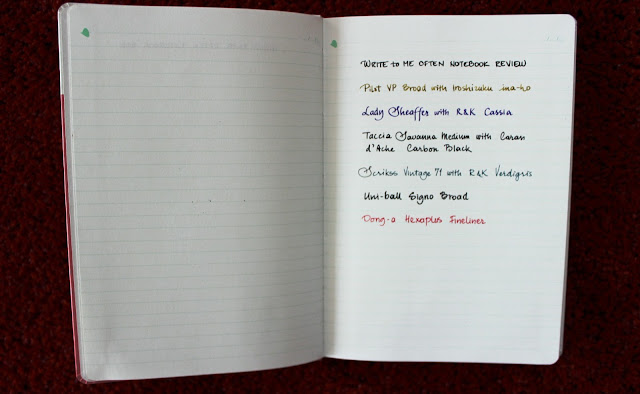 WRITE to ME OFTEN NOTEBOOK REVIEW
Pilot VP Broad with Iroshizuku ina-ho
Lady Sheaffer with R&K Cassia
Taccia Savanna Medium with Caran
d'Ache Carbon Black
Scrikss Vintage 71 with R&K Verdigris
Uni-ball Signo Broad
Dong-a Hexaplus Fineliner